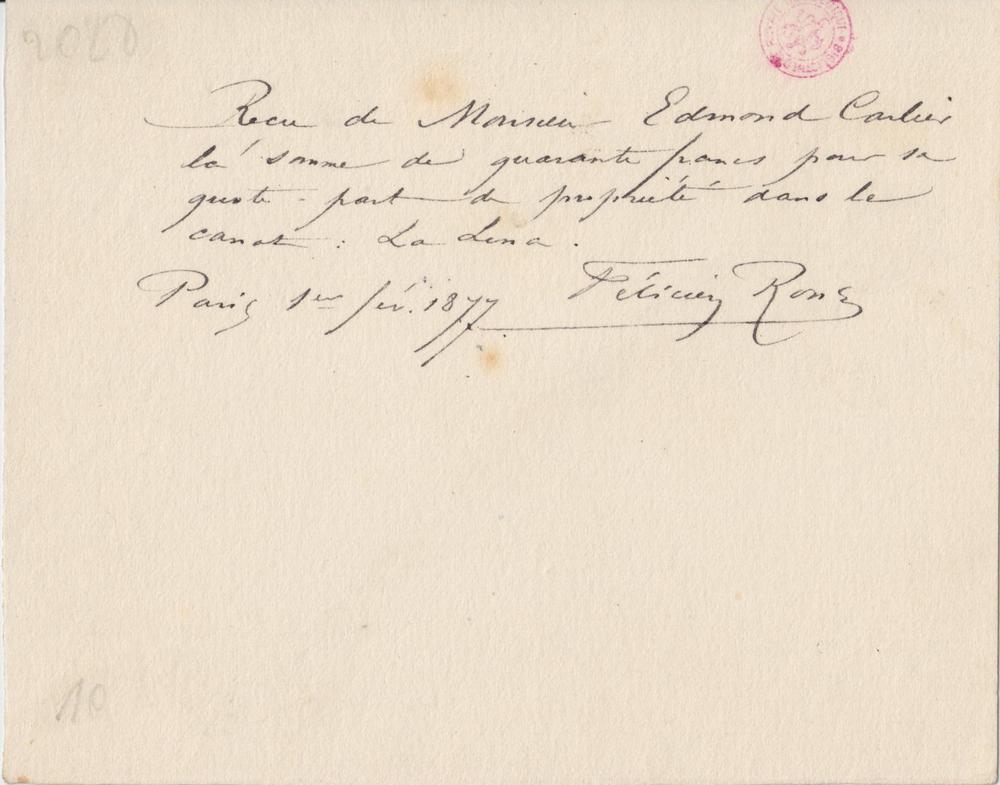 2020
Recu de Monsieur Edmond Carlier
la somme de quarante francs pour sa
quote-part de propriété dans le
canot : La Lena.
Paris 1er fév. 1877 Félicien Rops
10